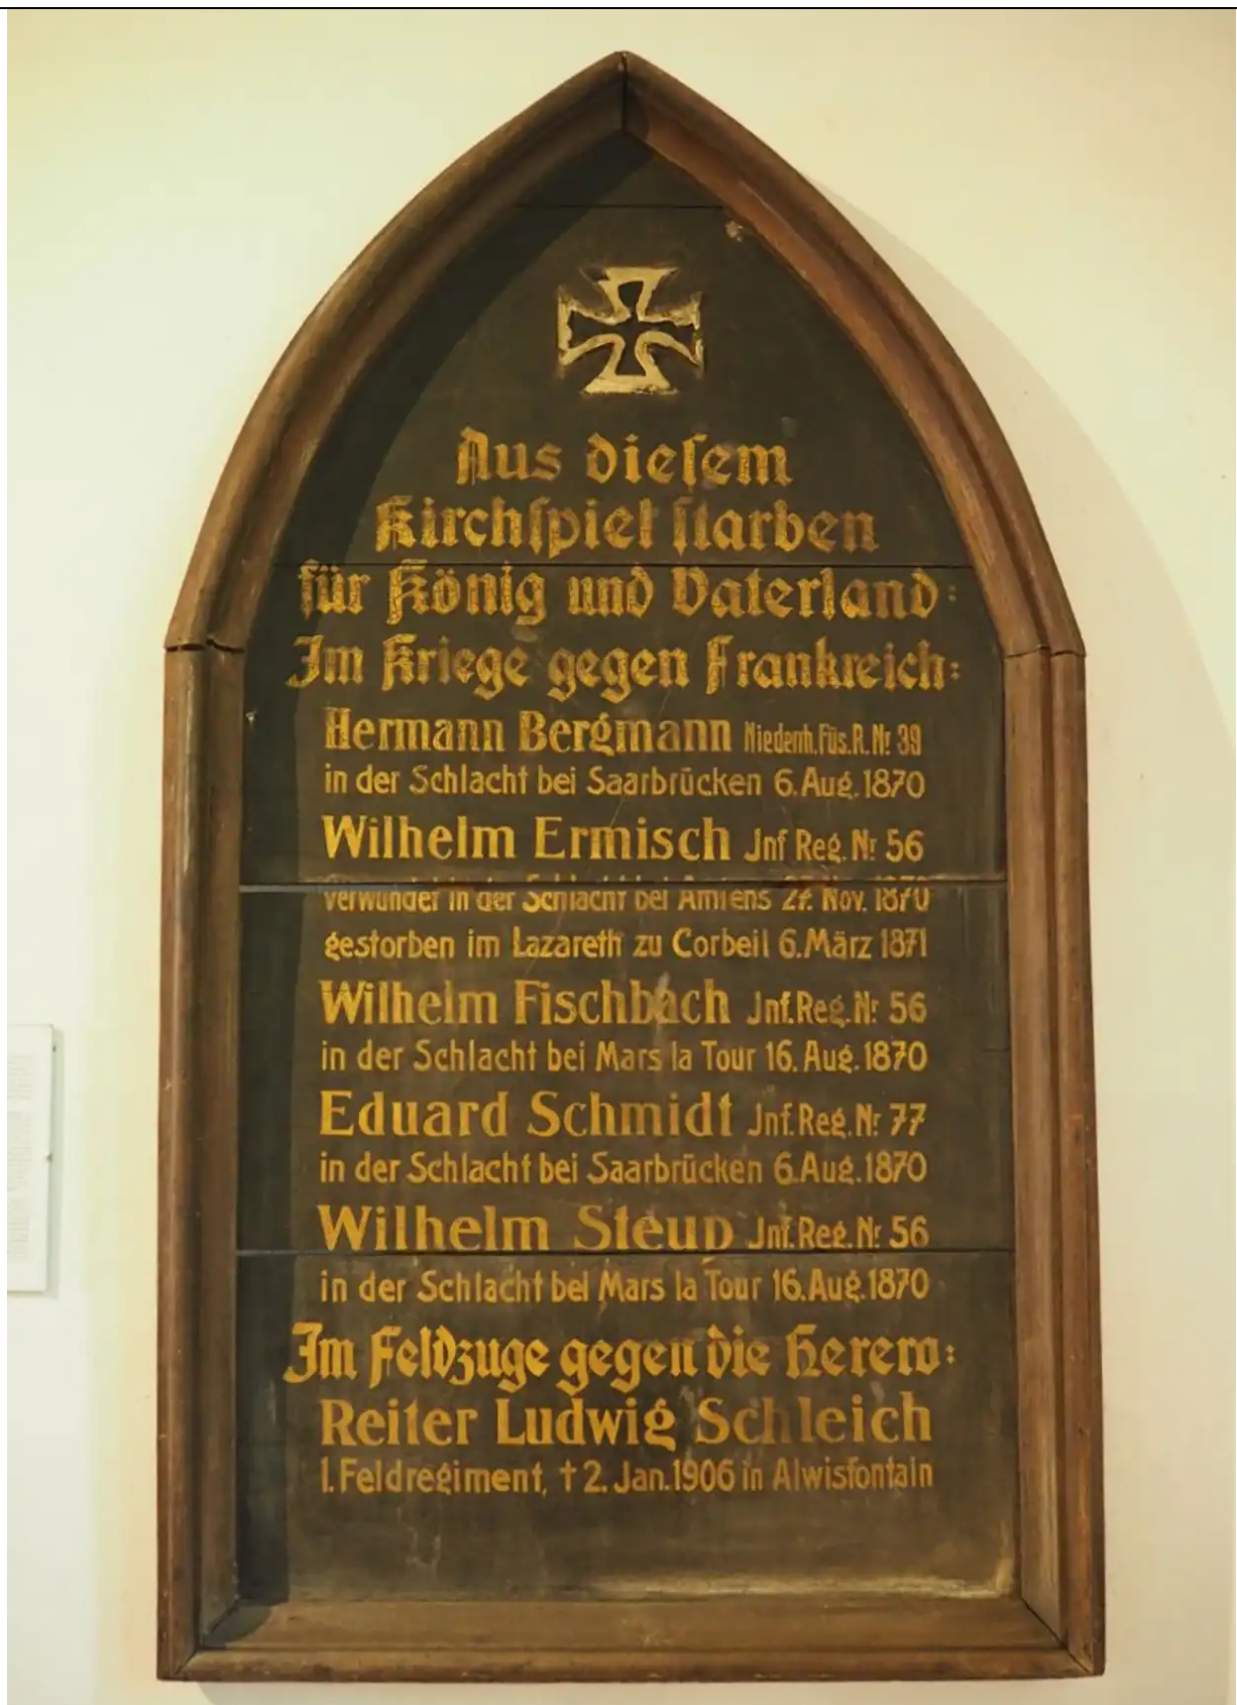 Aus diesem
Kirchspiel starben
für König und Vaterland:
Im Kriege gegen Frankreich:
Hermann Bergmann Niederrh. Füs. R. Nr 39
in der Schlacht bei Saarbrücken 6. Aug. 1870
Wilhelm Ermisch Jnf Reg. Nr 56
verwundet in der Schlacht bei Amiens 27. Nov. 1870
gestorben im Lazareth zu Corbeil 6. März 1871
Wilhelm Fischbach Jnf. Reg. Nr 56
in der Schlacht bei Mars la Tour 16. Aug. 1870
Eduard Schmidt Jnf. Reg. Nr 77
in der Schlacht bei Saarbrücken 6. Aug. 1870
Wilhelm Steup Jnf. Reg. Nr 56
in der Schlacht bei Mars la Tour 16. Aug. 1870
Im Feldzuge gegen die Herero:
Reiter Ludwig Schleich
1. Feldregiment, † 2. Jan. 1906 in Alwisfontain